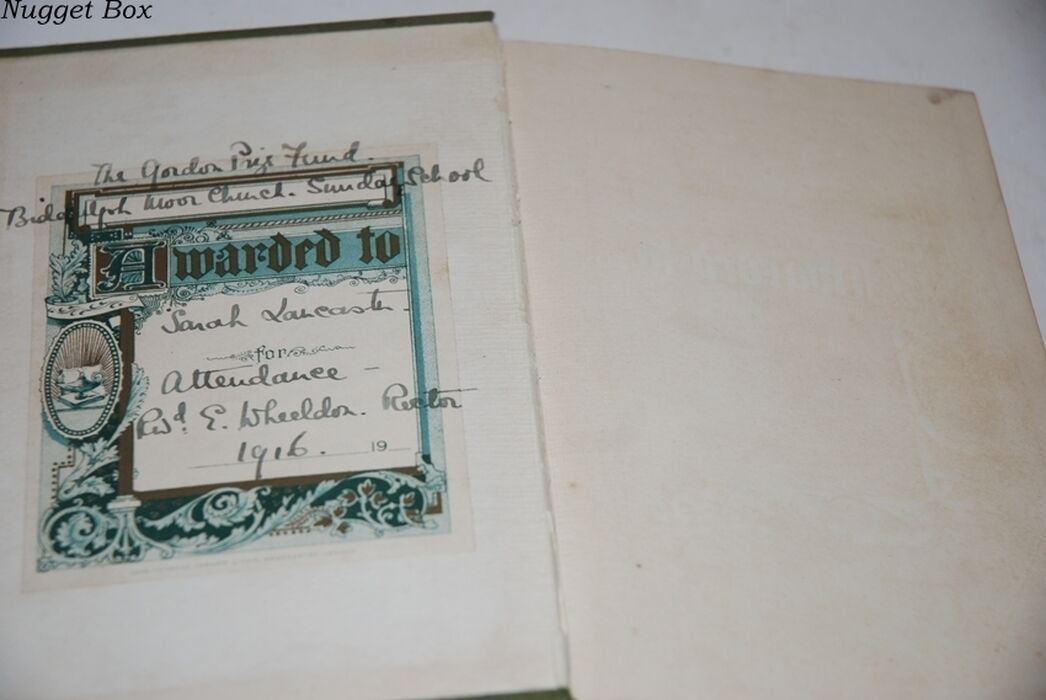 Nugget Box
The Gordon Prize Fund.
Biddulph Moor Church. Sunday School
Awarded to
Sarah Lancaster.
for
Attendance -
Revd. E. Wheeldon. Rector
1916. 19